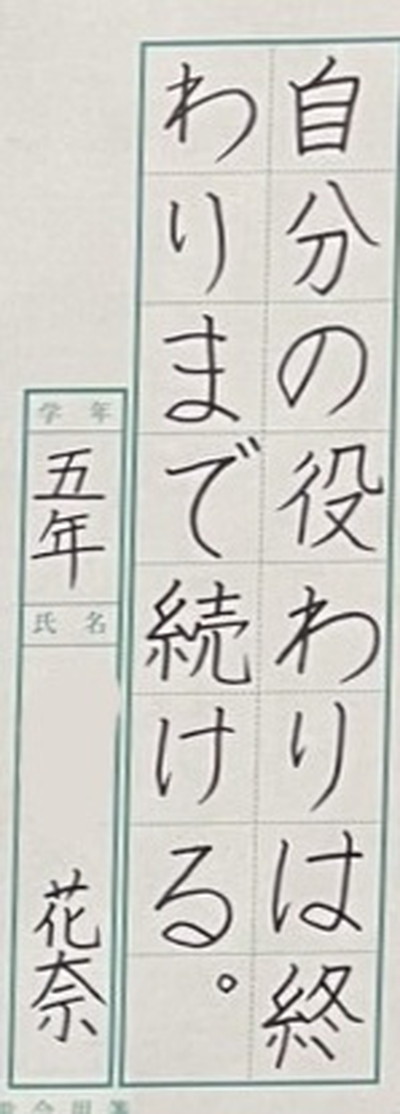 自分の役わりは終
わりまで続ける。
学年
五年
氏名
花奈